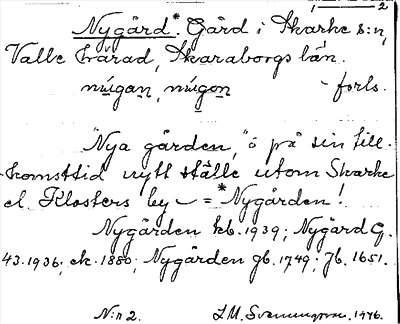 1 2
Nygård.* Gård i Skarke s:n,
Valle härad, Skaraborgs län.
núgan, núgon - forls.
"Nya gården," ö på sin till-
komsttid nytt ställe utom Skarke
el. Klosters by - = *Nygården!
Nygården kb. 1939; Nygård G.
43. 1936, ek. 1880; Nygården gb. 1749; Jb. 1651.
N:o 2. 1976.